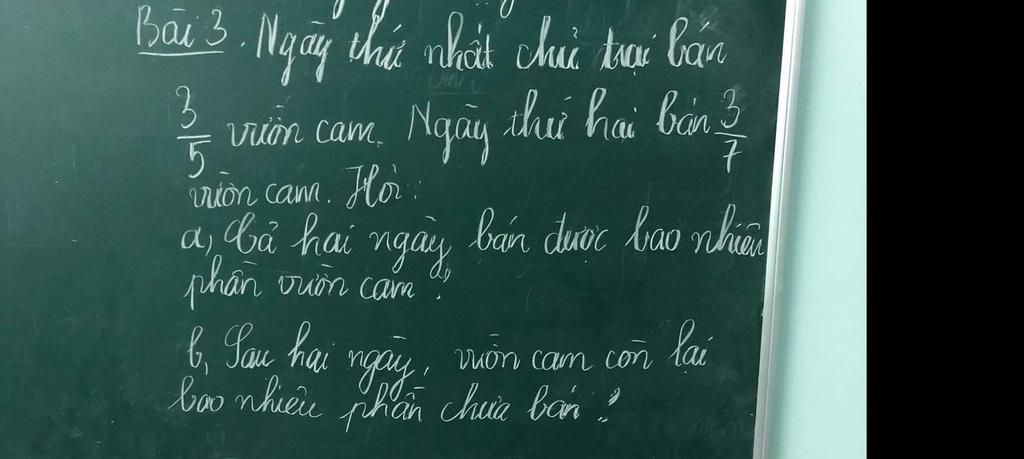 Bài 3. Ngày thứ nhất chủ trại bán
3/5 vườn cam. Ngày thứ hai bán 3/7
vườn cam. Hỏi:
a, Cả hai ngày, bán được bao nhiêu
phần vườn cam?
b, Sau hai ngày, vườn cam còn lại
bao nhiêu phần chưa bán?